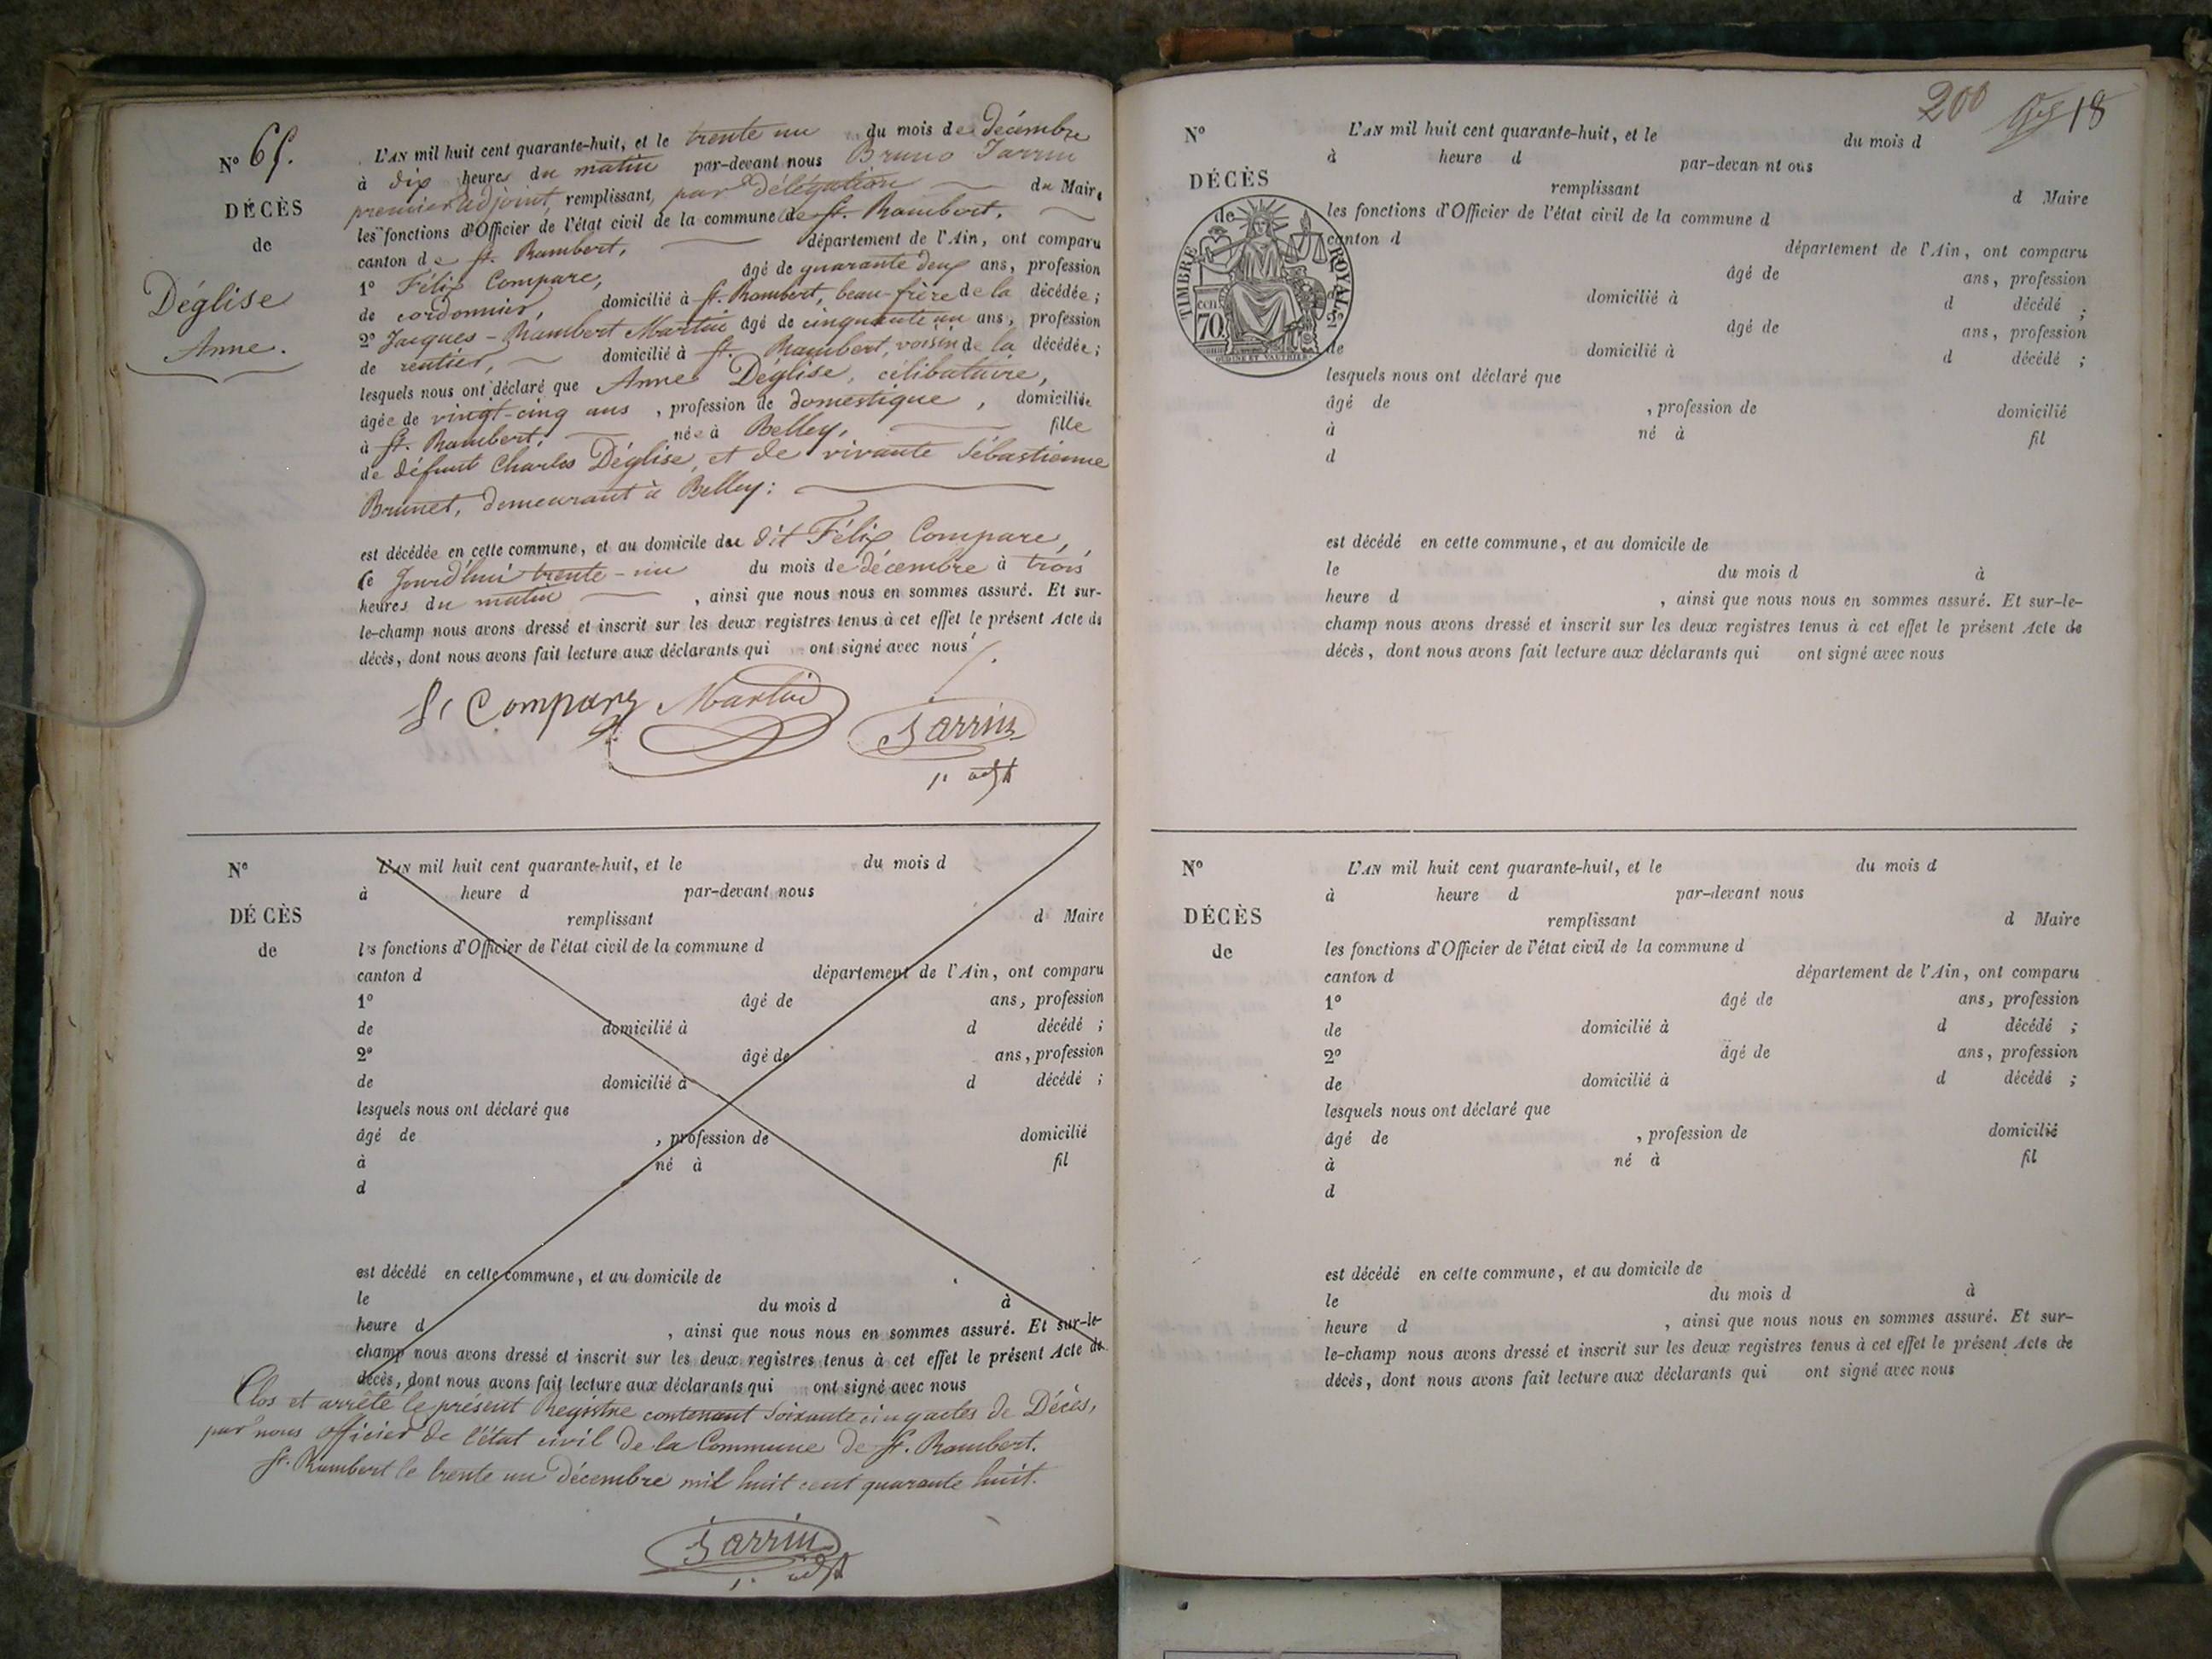 N° 65.
DÉCÈS
de
Déglise
Anne.
L'AN mil huit cent quarante-huit, et le trente un du mois de décembre
à dix heures du matin par-devant nous Bruno Jarrin
premier adjoint, remplissant, par délégation du Maire
les fonctions d'Officier de l'état civil de la commune de St. Rambert,
canton de St. Rambert, département de l'Ain, ont comparu
1° Félix Compare, âgé de quarante deux ans, profession
de cordonnier, domicilié à St. Rambert, beau-frère de la décédée;
2° Jacques-Rambert Martin âgé de cinquante un ans, profession
de rentier, domicilié à St. Rambert, voisin de la décédée;
lesquels nous ont déclaré que Anne Déglise, célibataire,
âgée de vingt-cinq ans, profession de domestique, domiciliée
à St. Rambert, née à Belley, fille
de défunt Charles Déglise, et de vivante Sébastienne
Brunet, demeurant à Belley:
est décédée en cette commune, et au domicile du dit Félix Compare,
ce jourd'hui trente-un du mois de décembre à trois
heures du matin, ainsi que nous nous en sommes assuré. Et sur-
le-champ nous avons dressé et inscrit sur les deux registres tenus à cet effet le présent Acte de
décès, dont nous avons fait lecture aux déclarants qui ont signé avec nous
Compare Martin
Jarrin
1er adjt
N°
DÉCÈS
de
L'AN mil huit cent quarante-huit, et le du mois d
à heure d par-devant nous
remplissant d Maire
les fonctions d'Officier de l'état civil de la commune d
canton d département de l'Ain, ont comparu
1° âgé de ans, profession
de domicilié à d décédé ;
2° âgé de ans, profession
de domicilié à d décédé ;
lesquels nous ont déclaré que
âgé de , profession de domicilié
à né à fil
d
est décédé en cette commune, et au domicile de
le du mois d à
heure d , ainsi que nous nous en sommes assuré. Et sur-le-
champ nous avons dressé et inscrit sur les deux registres tenus à cet effet le présent Acte de
décès, dont nous avons fait lecture aux déclarants qui ont signé avec nous
Clos et arrêté le présent Registre contenant soixante cinq actes de Décès,
par nous officier de l'état civil de la Commune de St. Rambert.
St. Rambert le trente un décembre mil huit cent quarante huit.
Jarrin
1er adjt
200 18
N°
DÉCÈS
de
TIMBRE ROYAL
cen
70
L'AN mil huit cent quarante-huit, et le du mois d
à heure d par-devan nt ous
remplissant d Maire
les fonctions d'Officier de l'état civil de la commune d
canton d département de l'Ain, ont comparu
âgé de ans, profession
domicilié à d décédé ;
âgé de ans, profession
de domicilié à d décédé ;
lesquels nous ont déclaré que
âgé de , profession de domicilié
à né à fil
d
est décédé en cette commune, et au domicile de
le du mois d à
heure d , ainsi que nous nous en sommes assuré. Et sur-le-
champ nous avons dressé et inscrit sur les deux registres tenus à cet effet le présent Acte de
décès, dont nous avons fait lecture aux déclarants qui ont signé avec nous
N°
DÉCÈS
de
L'AN mil huit cent quarante-huit, et le du mois d
à heure d par-devant nous
remplissant d Maire
les fonctions d'Officier de l'état civil de la commune d
canton d département de l'Ain, ont comparu
1° âgé de ans, profession
de domicilié à d décédé ;
2° âgé de ans, profession
de domicilié à d décédé ;
lesquels nous ont déclaré que
âgé de , profession de domicilié
à né à fil
d
est décédé en cette commune, et au domicile de
le du mois d à
heure d , ainsi que nous nous en sommes assuré. Et sur-
le-champ nous avons dressé et inscrit sur les deux registres tenus à cet effet le présent Acte de
décès, dont nous avons fait lecture aux déclarants qui ont signé avec nous